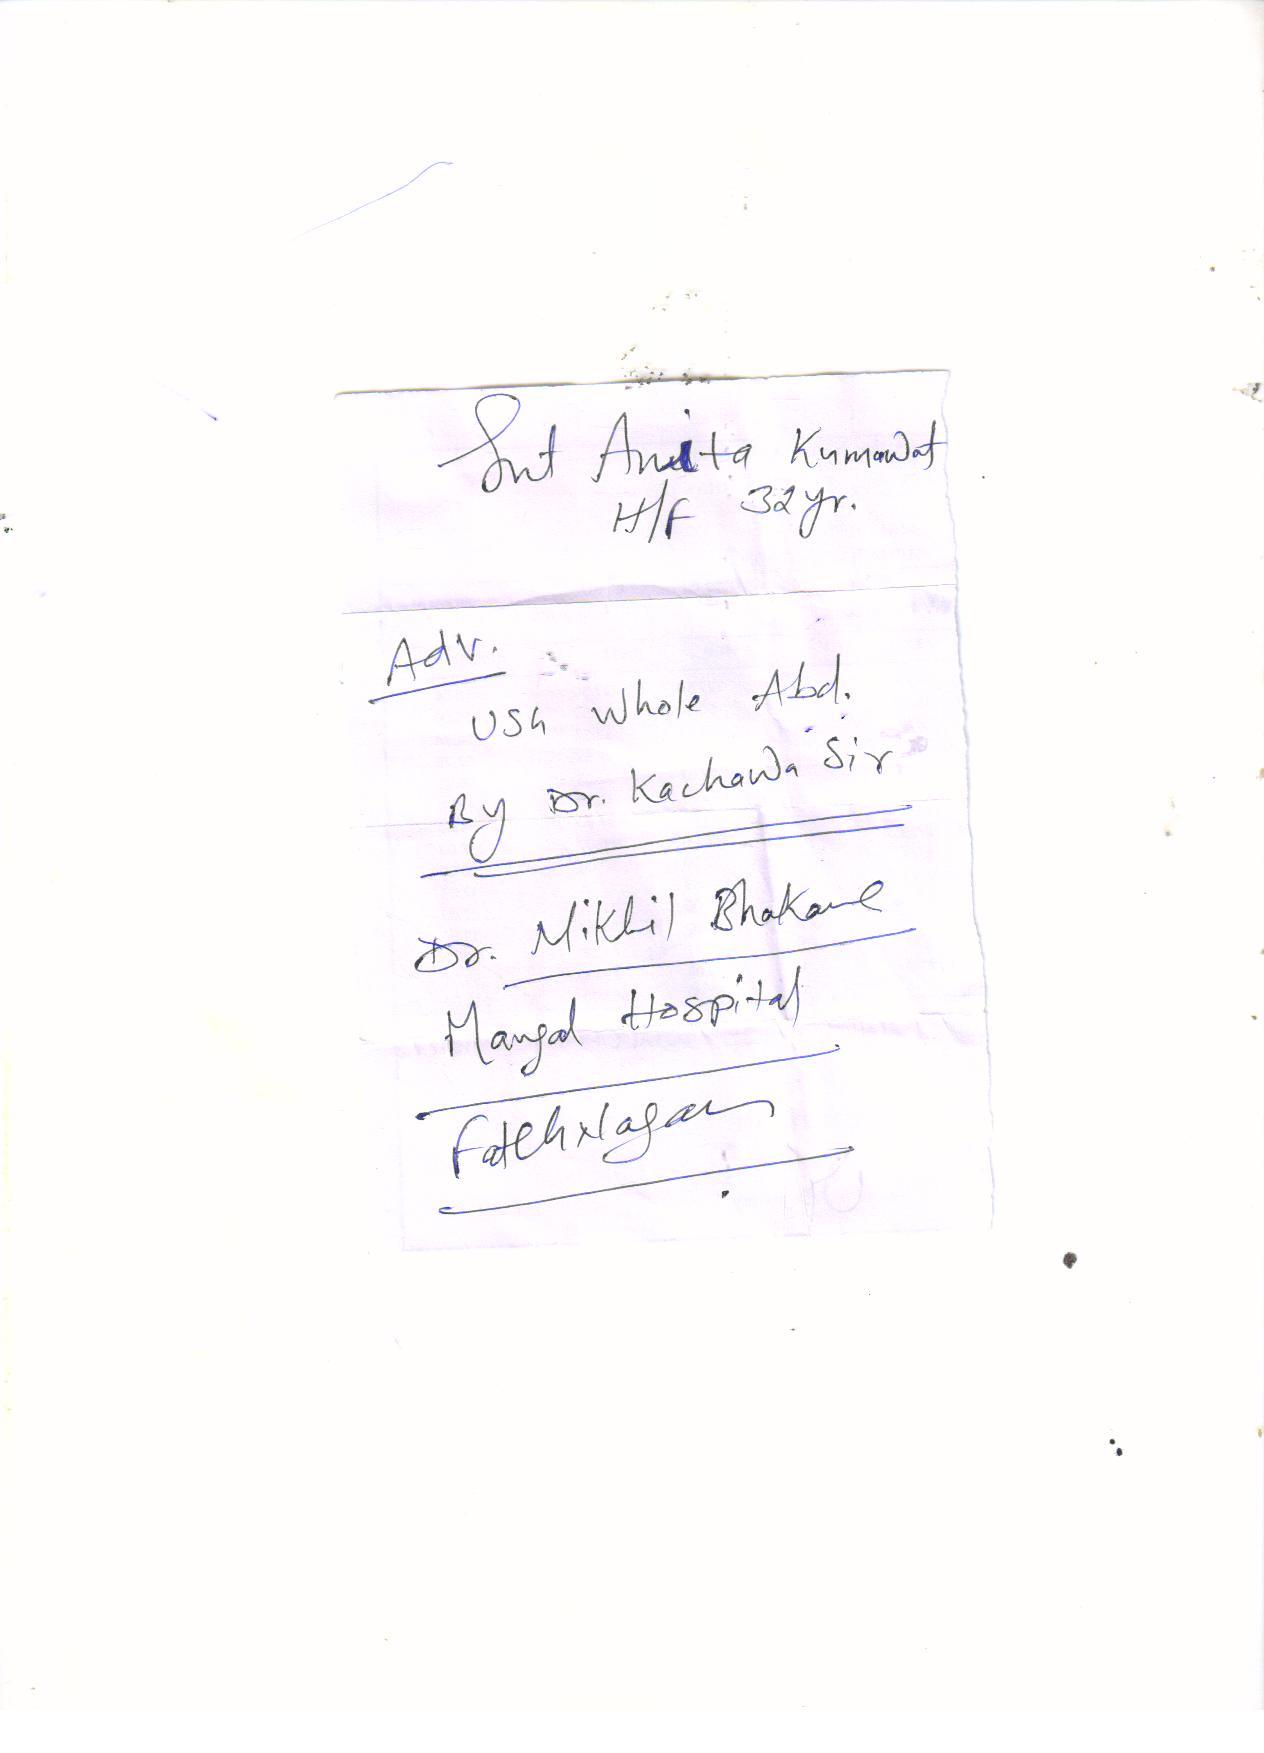 Smt Anita Kumawat
H/F 32 yr.
Adv.
USG Whole Abd.
By Dr. Kachawa Sir
Dr. Nikhil Bhakare
Mangal Hospital
Fatehnagar